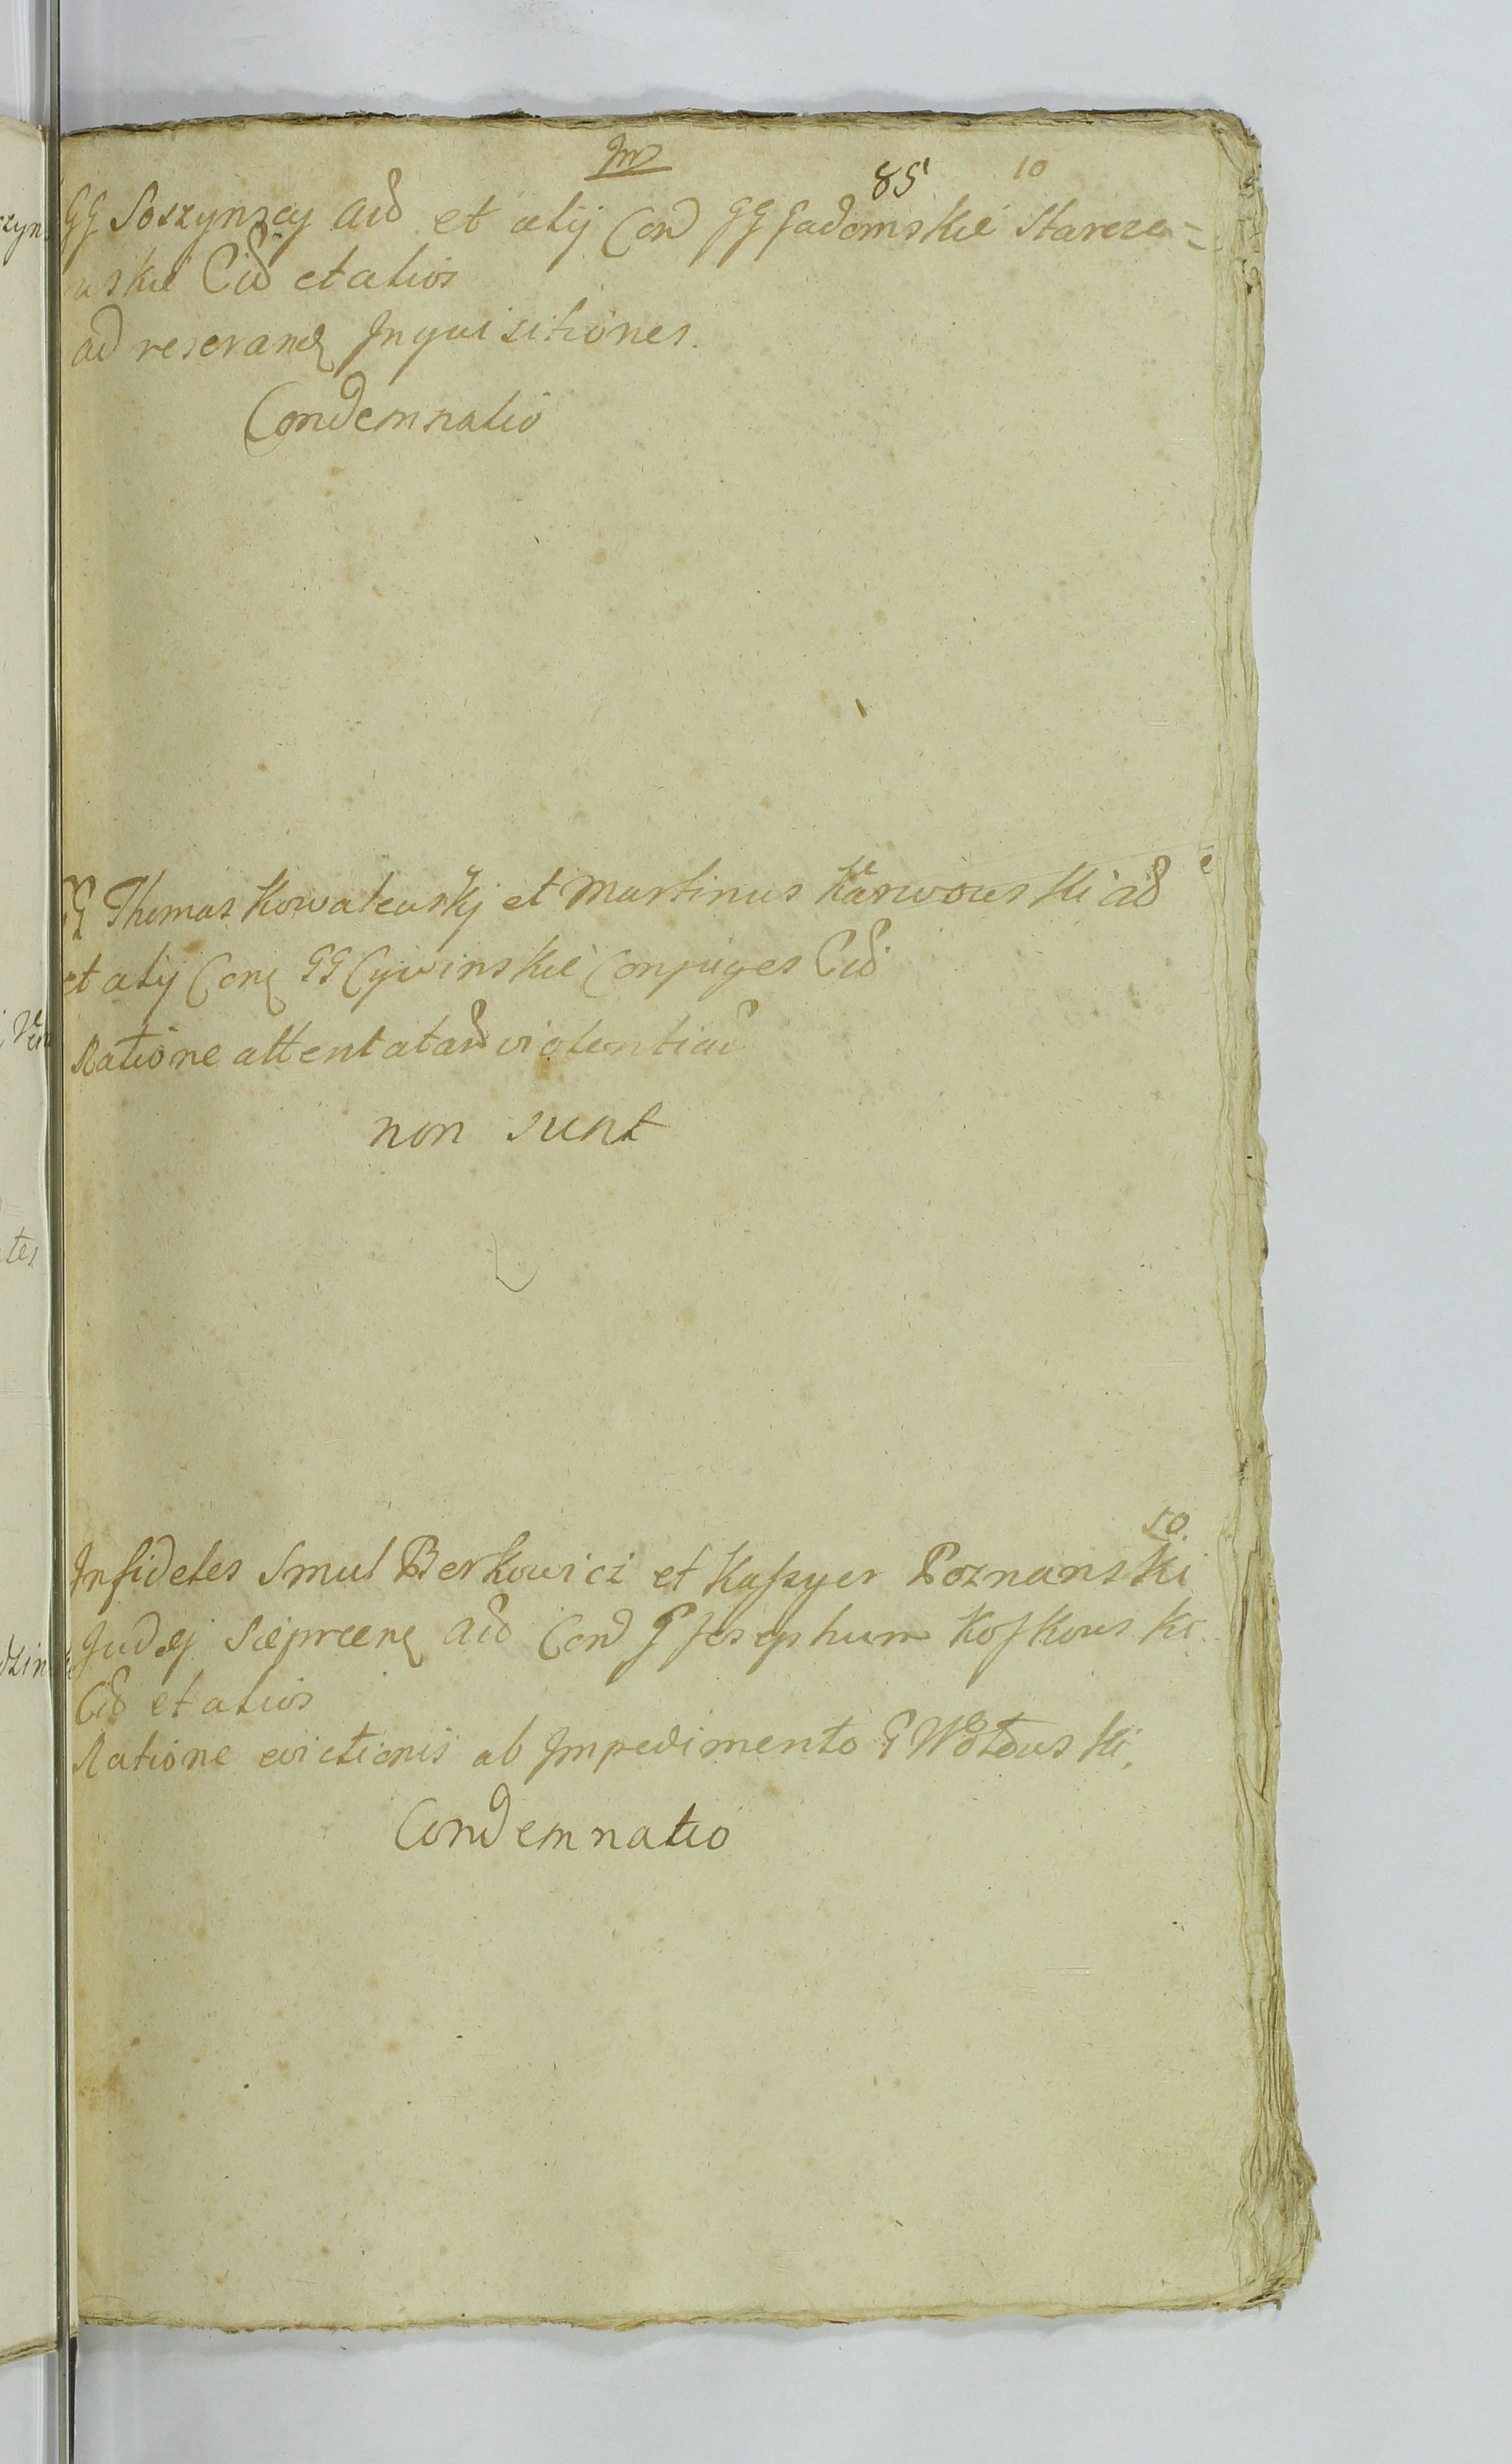 85 10
GG Soszynscy Aid et alij Con GG Gadomskie Starzew=
uskie Cid et alios
ad reseranȝ Inquisitiones.
Condemnatio
GG Thomas Kowalewskj et Martinus Karwowski ad
et alij Conȝ GG Cywinskie Conjuges Cid
Ratione attentatar violentiar
non sunt
50.
Infideles Smul Berkowicz et Kasper Poznanski
Judej Sieprcenȝ Aid Con G Josephum Koskowski
Cid et alios
Ratione evictionis ab Impedimento G Wołowski.
Condemnatio